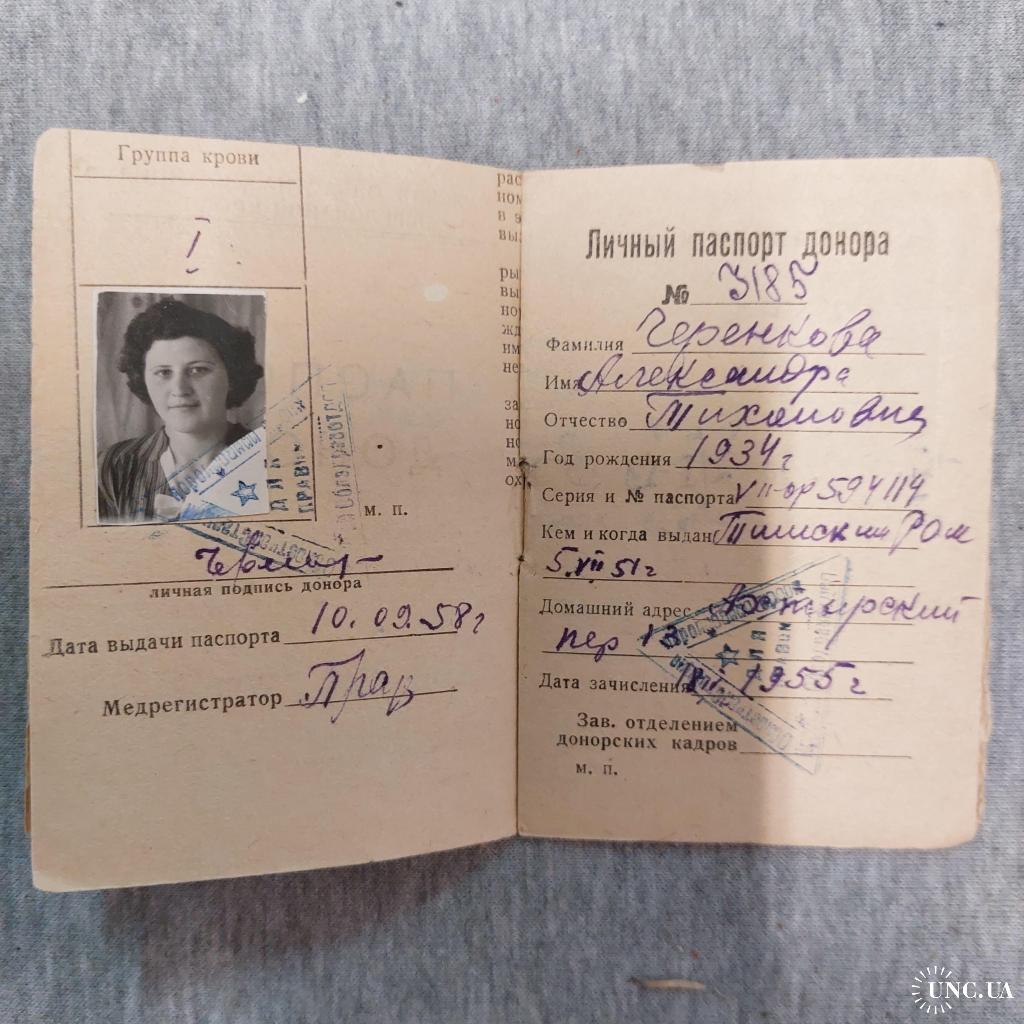 Группа крови
I
м. п.
личная подпись донора
Дата выдачи паспорта 10.09.58г
Медрегистратор
рас
ном
в э
вы
ры
вы
но
жд
им
не
за
но
но
м
ох
Личный паспорт донора
№ 3185
Фамилия Черенкова
Имя Александра
Отчество Тихоновна
Год рождения 1934г
Серия и № паспорта VII-ЮР 594114
Кем и когда выдан Тимским РОМ
5.VII 51г
Домашний адрес
пер 13
Дата зачисления 1955г
Зав. отделением
донорских кадров
м. п.
UNC.UA